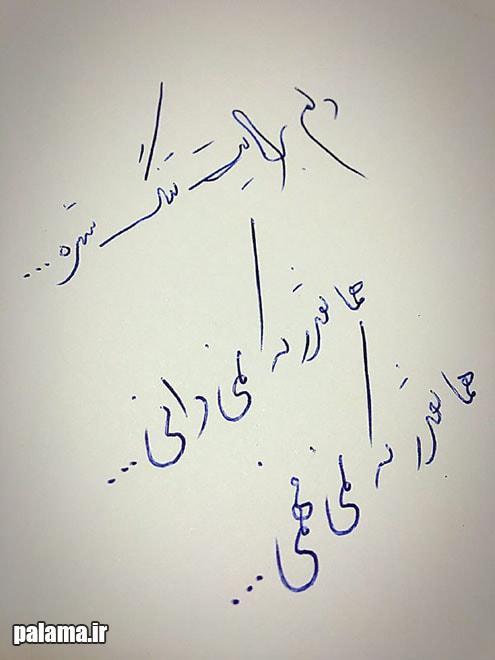 دلم برایت تنگ شده...
همانقدر که نمی دانی...
همانقدر که نمی فهمی...
palama.ir